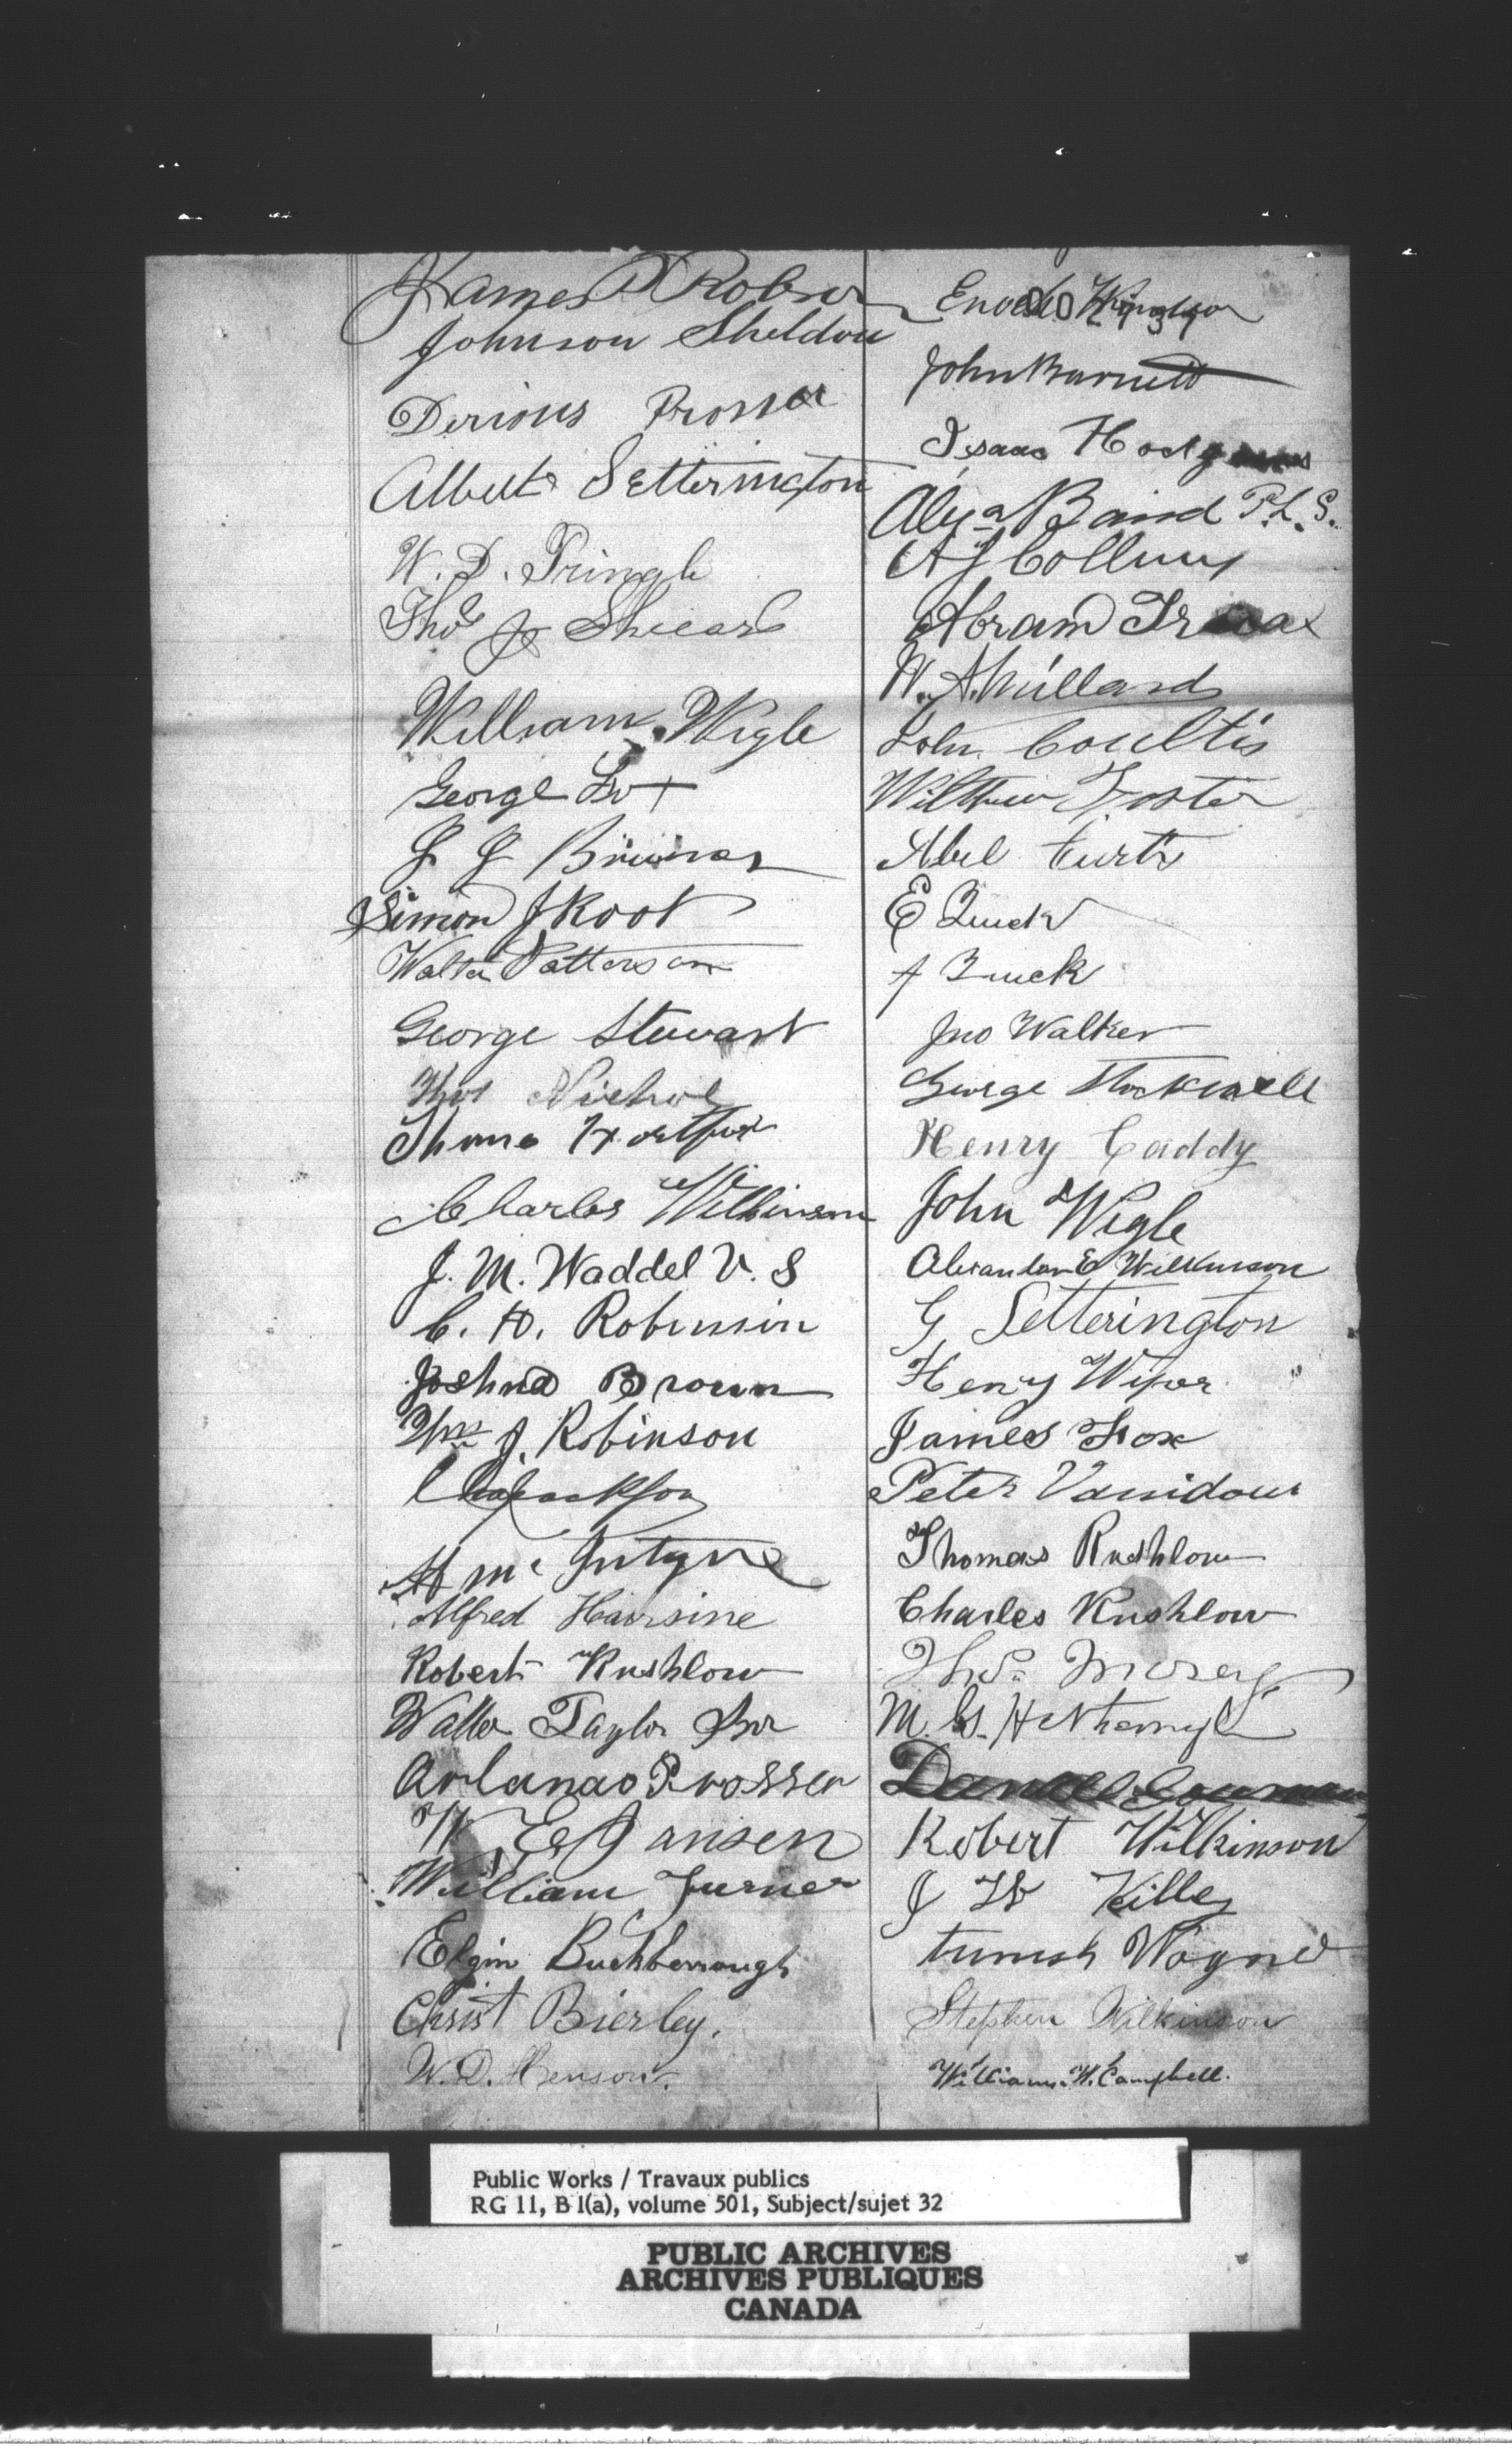 James Robson
Johnson Sheldon
Derious Prosser
Albert Setterington
W. D. Pringle
Thos J
William Wigle
George Fox
J J
Simon J Root
Walter Patterson
George Stewart
Thos Nichol
Charles Wilkinson
J. M. Waddel V. S
C. H. Robinson
Joshua Brown
Wm J. Robinson
Jackson
A McIntyre
Alfred Hairsine
Robert Rushlow
Walter Taylor
Arlanao Prosser
W E Jansen
William Turner
Elgin Buchberrough
Christ Bierley.
W. D. Henson.
Enoch
John Barnett
Isaac
Alexr Baird P. L. S.
A J Collins
Abram
W. A. Millard
John Coultis
Foster
Abel Curtis
E Quick
J Quick
Jno Walker
George Stockwell
Henry Caddy
John Wigle
Alexander E Wilkinson
G Setterington
Henry
James Fox
Peter
Thomas Rushlow
Charles Rushlow
Thos
M. G.
Daniel
Robert Wilkinson
J W
Wagner
Stephen Wilkinson
William. H. Campbell.
Public Works / Travaux publics
RG 11, B 1(a), volume 501, Subject/sujet 32
PUBLIC ARCHIVES
ARCHIVES PUBLIQUES
CANADA